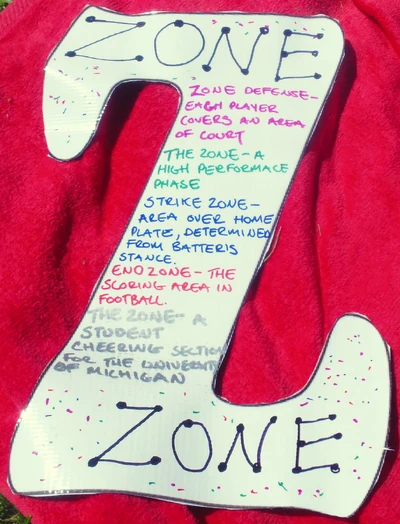 ZONE
ZONE DEFENSE-
EACH PLAYER
COVERS AN AREA
OF COURT
THE ZONE- A
HIGH PERFORMACE
PHASE
STRIKE ZONE-
AREA OVER HOME
PLATE, DETERMINED
FROM BATTERIS
STANCE.
END ZONE- THE
SCORING AREA IN
FOOTBALL.
THE ZONE- A
STUDENT
CHEERING SECTION
FOR THE UNIVERSITY
OF MICHIGAN
ZONE